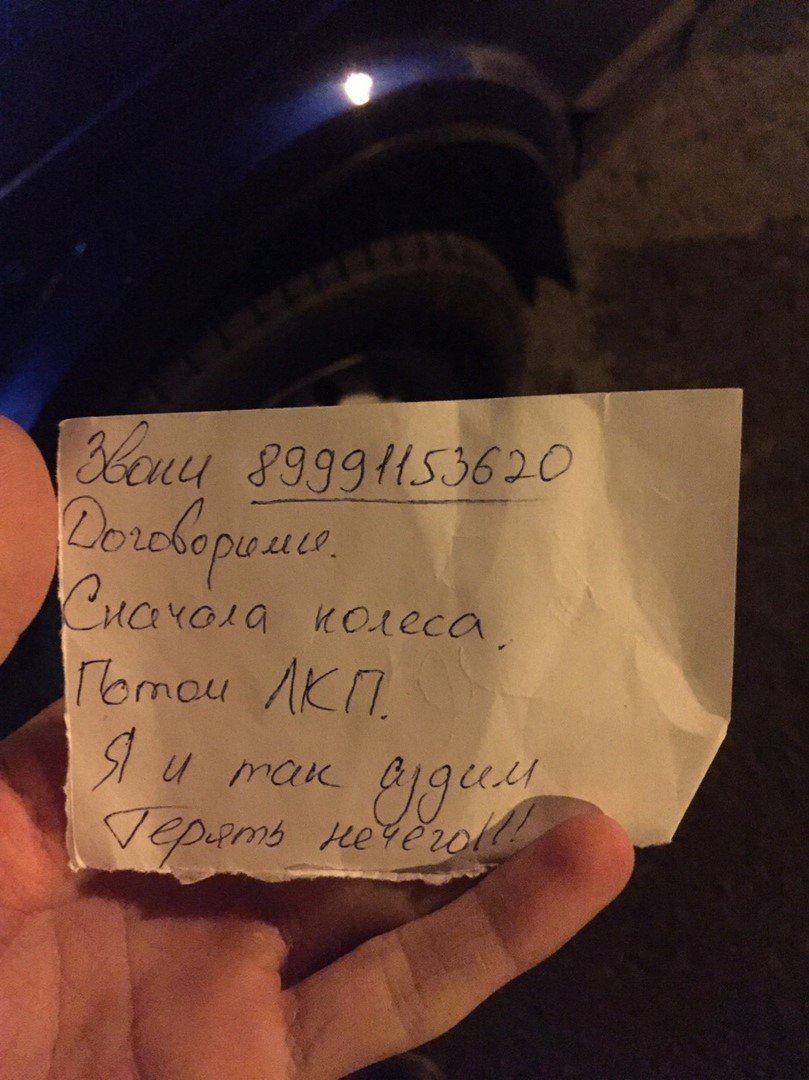 Звони 89991153620
Договоримся.
Сначала колеса.
Потом ЛКП.
Я и так судим
Терять нечего!!!